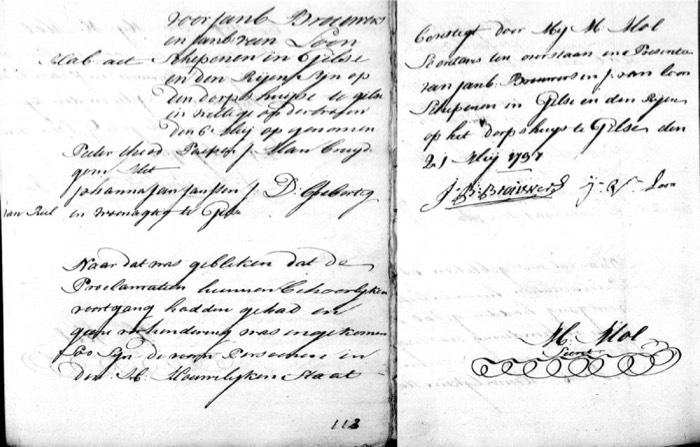 voor Janb. Brouwers
en Janb. van Loon
Schepenen in Gilse
en den Rijen sijn op
den dorps huijse te Gilse
in wettige ondertrouw
den 6 Meij op genomen
Peter
Johanna Jan Jansen J. D. Geboortig
van Riel
en woonagtig te Gilse
Naar dat was gebleken dat de
Proclamatien hunnen behoorlijken
voortgang hadden gehad en
geene verhindering was ingekomen
So Sijn de voorn. Persoonen in
den H: Houwelijken Staat
113
bevestigt door Mij M. Mol
Secretaris ten overstaan en e Presentie
van Janb. Brouwers en J. van Loon
Schepenen in Gilse en den Rijen
op het dorps huijs te Gilse den
21 Meij 1797
J: B: Brouwers J. V. Loon
M: Mol
Secrets